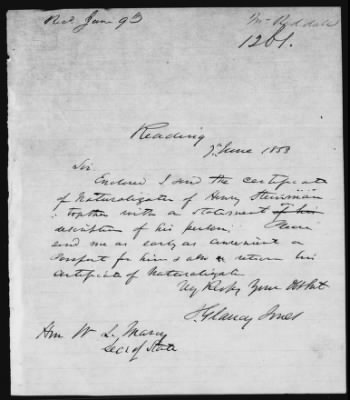 Rec'd June 9th
Mr Reddall
1261.
Reading
7 June 1853
Sir
Enclosed I send the certificate
of Naturalization of Henry
together with a Statement of his
description of his person. Please
send me as early as convenient a
Passport for him & also return his
Certificate of Naturalizat
Very Respy Your Obt Svt
J Glancy Jones
Hon W L Marcy
Sec of State